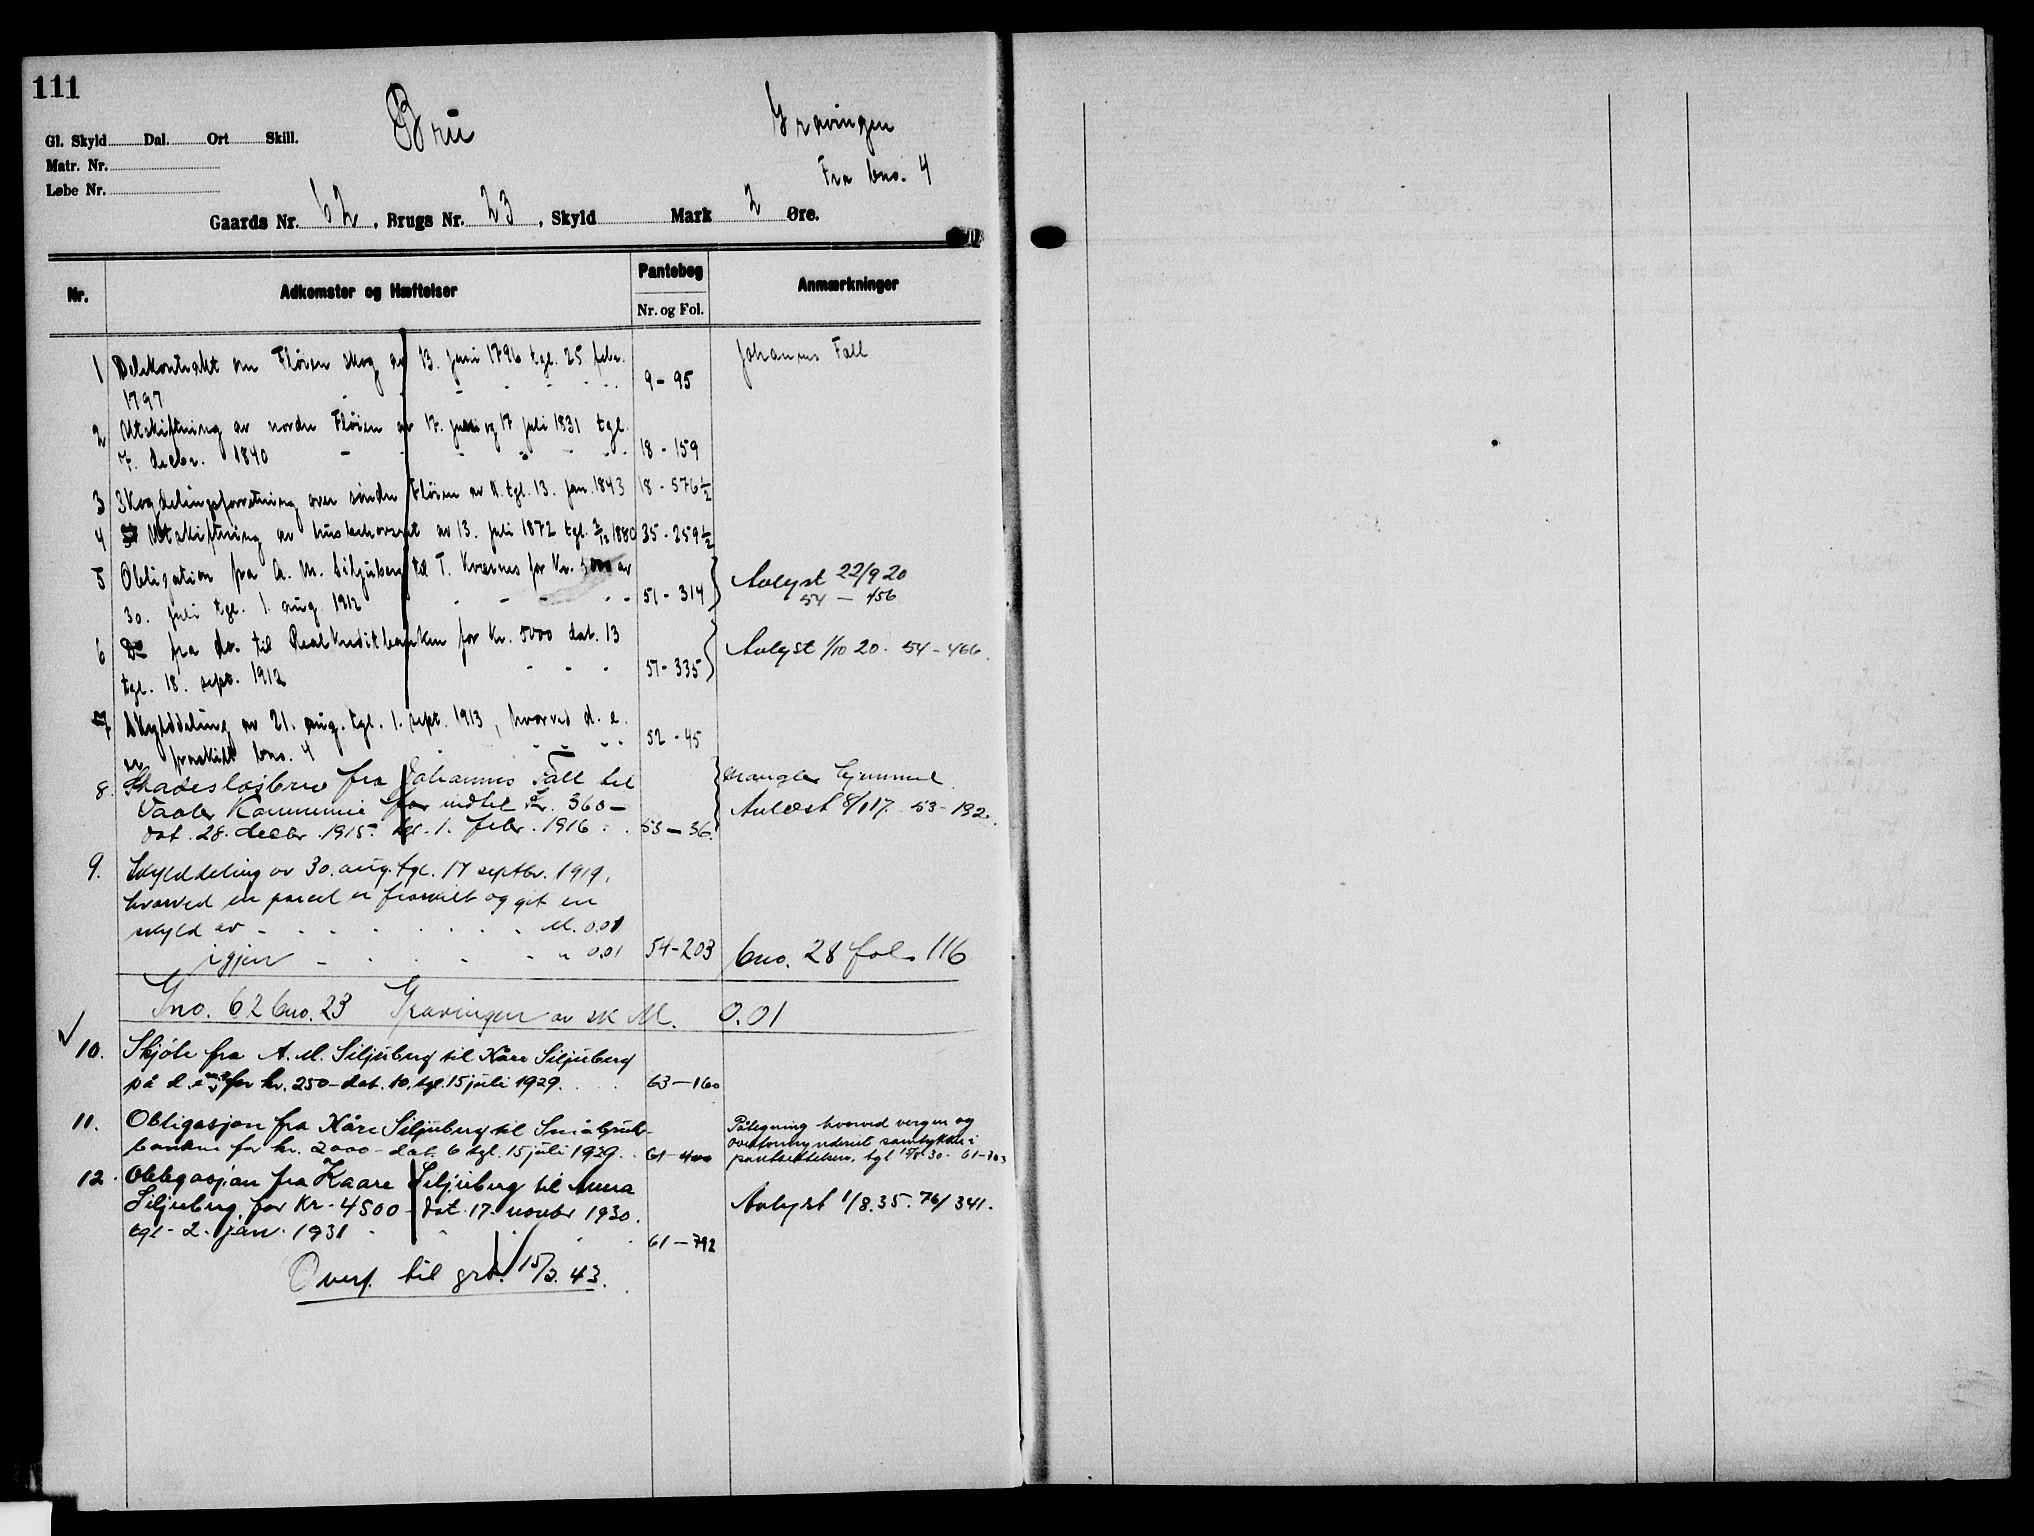 111
Gl. Skyld Dal. Ort Skill.
Matr. Nr.
Løbe Nr.
Bru
Gravingen
Fra bno. 4
Gaards Nr. 62, Brugs Nr. 23, Skyld Mark 2 Øre.
Nr. Adkomster og Hæftelser Pantebog Nr. og Fol. Anmærkninger
1 Delekontrakt om Fløien skog av 13. juni 1796 tgl. 25 febr. Johannes Fall
1797 9 - 95
2 Utskiftning av nordre Fløien av 17. juni og 17 juli 1831 tgl.
7. decbr. 1840 18 - 159
3 Skogdelingsforretning over søndre Fløien av tgl. 13. jan. 1843 18 - 576 1/2
4 Utskiftning av husbehovsret av 13. juli 1872 tgl. 2/12 1880 35 - 259 1/2
5 Obligation fra A. M. Siljuberg til T. Kvernes for kr. av
30. juli tgl. 1. aug 1912 51 - 314 Avlyst 22/9 20
54 - 456
6 Do fra do. til Realkreditbanken for kr. 5000 dat. 13
tgl. 18. sept. 1912 51 - 335 Avlyst 1/10 20. 54 - 466.
7 Skylddeling av 21. aug. tgl. 1. sept. 1913, hvorved d. e.
er fraskilt bno. 4 52 - 45
8. Skadesløsbrev fra Johannes Fall til mangler hjemmel.
Vaaler Kommune for indtil Kr. 360 - Avlæst 8/1 17. 53 - 192.
dat. 28. decbr. 1915. tgl. 1. febr. 1916 53 - 36.
9. Skylddeling av 30. aug. tgl. 17 septbr. 1919,
hvorved en parcel er fraskilt og git en
skyld av M. 0.01
igjen " 0.01 54-203 bno. 28 fol. 116
Gno. 62 bno. 23 Gravingen av sk M. 0.01
10. Skjøte fra A. M. Siljuberg til Kåre Siljuberg
på d. e. for kr. 250 - dat. 10. tgl. 15 juli 1929. 63 - 160
11. Obligasjon fra Kåre Siljuberg til Småbruk-
banken for kr. 2000 - dat. 6 tgl. 15 juli 1929. 61 - 400
Påtegning hvorved vergen og
overformynderiet samtykker i
pantsettelsen. tgl 15/8 30 - 61 - 703
12. Obligasjon fra Kaare Siljuberg til Anna
Siljuberg, for kr. 4500 - dat. 17. novbr 1930. Avlyst 1/8. 35. 76/341.
tgl. 2. jan. 1931 61 - 792
Overf. til grb. 15/3. 43.